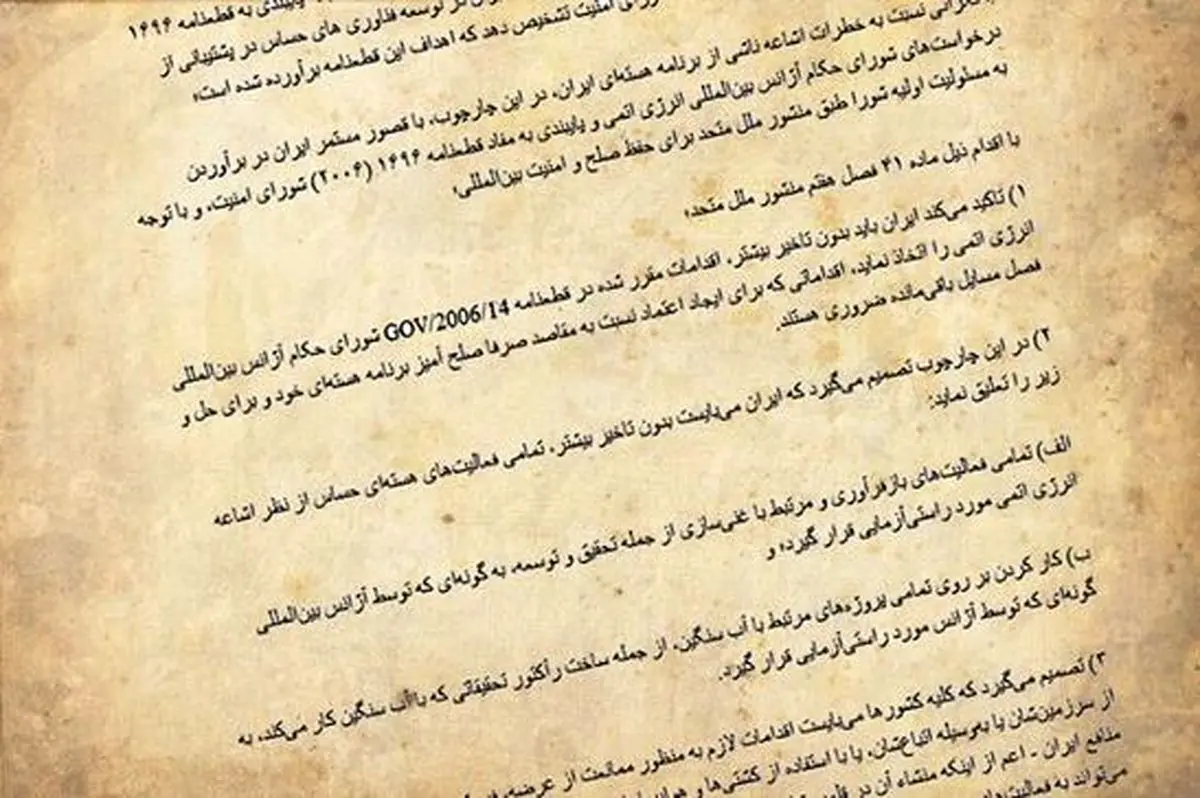 پایبندی به قطعنامه ۱۶۹۶
در توسعه فناوری های حساس در پشتیبانی از
امنیت تشخیص دهد که اهداف این قطعنامه برآورده شده است؛
نگرانی نسبت به خطرات اشاعه ناشی از برنامه هسته‌ای ایران، در این چارچوب، با قصور مستمر ایران در برآوردن
درخواست‌های شورای حکام آژانس بین‌المللی انرژی اتمی و پایبندی به مفاد قطعنامه ۱۶۹۶ (۲۰۰۶) شورای امنیت، و با توجه
به مسئولیت اولیه شورا طبق منشور ملل متحد برای حفظ صلح و امنیت بین‌المللی؛
با اقدام ذیل ماده ۴۱ فصل هفتم منشور ملل متحد؛
۱) تاکید می‌کند ایران باید بدون تاخیر بیشتر، اقدامات مقرر شده در قطعنامه GOV/2006/14 شورای حکام آژانس بین‌المللی
انرژی اتمی را اتخاذ نماید، اقداماتی که برای ایجاد اعتماد نسبت به مقاصد صرفا صلح آمیز برنامه هسته‌ای خود و برای حل و
فصل مسایل باقی‌مانده ضروری هستند.
۲) در این چارچوب تصمیم می‌گیرد که ایران می‌بایست بدون تاخیر بیشتر، تمامی فعالیت‌های هسته‌ای حساس از نظر اشاعه
زیر را تعلیق نماید:
الف) تمامی فعالیت‌های بازفرآوری و مرتبط با غنی‌سازی از جمله تحقیق و توسعه، به گونه‌ای که توسط آژانس بین‌المللی
انرژی اتمی مورد راستی‌آزمایی قرار گیرد؛ و
ب) کار کردن بر روی تمامی پروژه‌های مرتبط با آب سنگین، از جمله ساخت رآکتور تحقیقاتی که با آب سنگین کار می‌کند، به
گونه‌ای که توسط آژانس مورد راستی‌آزمایی قرار گیرد.
۳) تصمیم می‌گیرد که کلیه کشورها می‌بایست اقدامات لازم به منظور ممانعت از عرضه،
از سرزمین‌شان یا به‌وسیله اتباع‌شان، یا با استفاده از کشتی‌ها و
منافع ایران - اعم از اینکه منشاء آن در
می‌تواند به فعالیت‌های